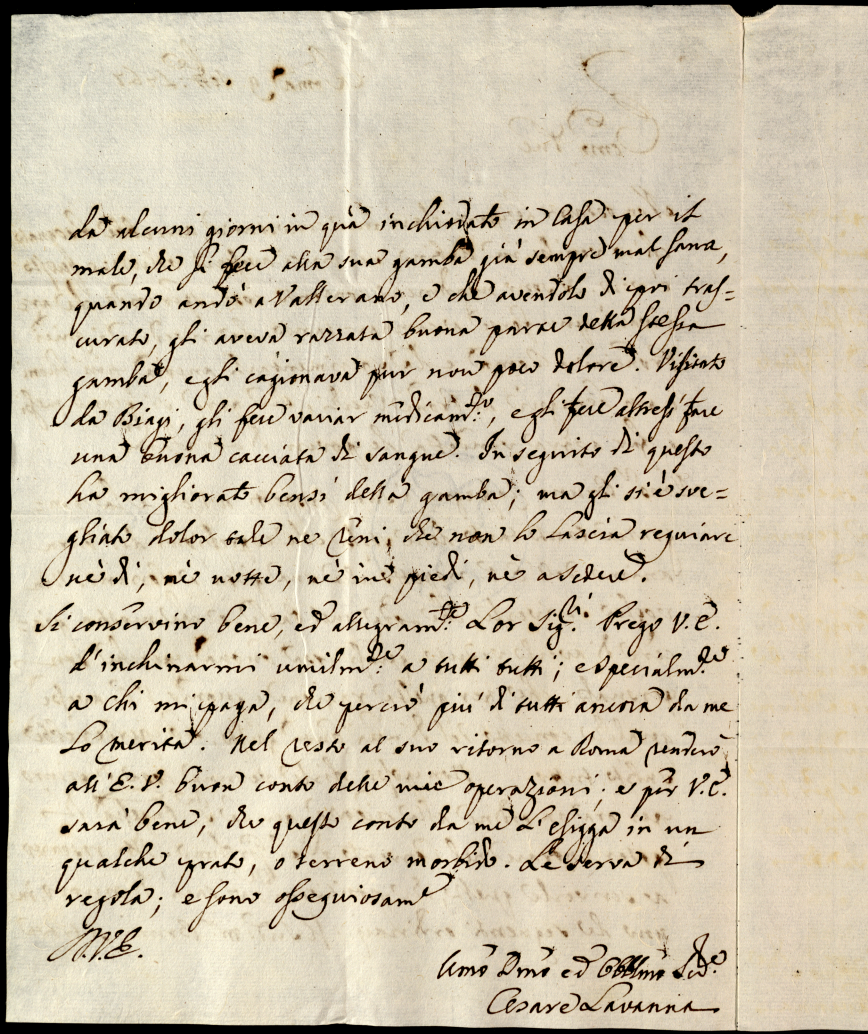 da alcuni giorni in quà inchiodato in Casa per il
male, che si fece alla sua gamba già sempre mal sana,
quando andò a Vallerano, e che avendolo di poi tras=
curato, gli aveva razzata buona parte della stessa
gamba, e gli cagionava pur non poco dolore. Visitato
da Biagi, gli fece variar medicam.to, e gli fece altresì fare
una buona cacciata di sangue. In seguito di questo
ha migliorato bensì della gamba; ma gli si è sve=
gliato dolor tale ne reni, che non lo lascia requiare
nè dì, nè notte, nè in piedi, nè a sedere.
Si conservino bene, ed allegram.te Lor Sig.ri Prego V. E.
d'inchinarmi umilm.te a tutti tutti; e specialm.te
a chi mi paga, che perciò più di tutti ancora da me
lo merita. Nel resto al suo ritorno a Roma renderò
all'E. V. buon conto delle mie operazioni; e per V. E.
sarà bene, che questo conto da me l'esigga in un
qualche prato, o terreno morbido. Le serva di
regola; e sono ossequiosam.e
D. V. E.
Umo Dmo ed Obblmo Ser.e
Cesare Lavanna